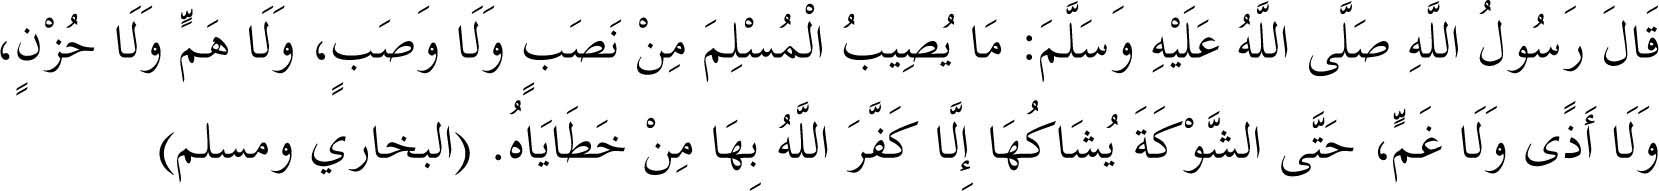 قَالَ رَسُولُ اللَّهِ صَلَّى اللَّهُ عَلَيْهِ وَسَلَّمَ: مَا يُصِيبُ الْمُسْلِمَ مِنْ نَصَبٍ وَلَا وَصَبٍ، وَلَا هَمٍّ وَلَا حُزْنٍ،
وَلَا أَذًى وَلَا غَمٍّ، حَتَّى الشَّوْكَةَ يُشَاكُهَا إِلَّا كَفَّرَ اللَّهُ بِهَا مِنْ خَطَايَاهُ. (البخاري ومسلم)